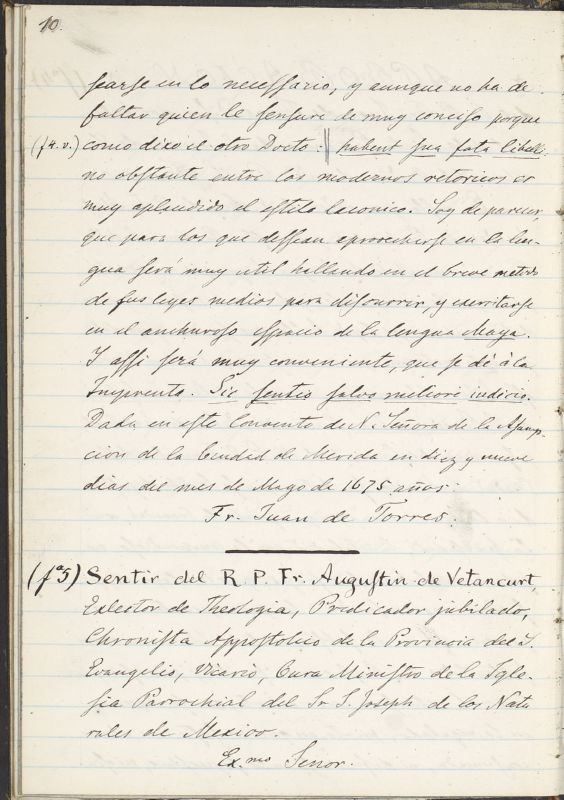 10.
searse en lo necessario, y aunque no ha de
faltar quien le sensure de muy conciso porque
(f4.v.) como dixo el otro Poeta: || habent sua fata libelli.
no obstante entre los modernos retoricos es
muy aplaudido el estilo laconico. Soy de parecer,
que para los que dessean aprovecharse en la len-
gua será muy util hallando en el breve metodo
de sus leyes medios para discurrir, y exercitarse
en el anchuroso espacio de la lengua Maya.
Y assi será muy conveniente, que se dé à la
Imprenta. Sic sentio salvo meliori iudicio.
Dada en este Convento de N. Señora de la Assump-
cion de la Ciudad de Merida en diez y nueve
dias del mes de Mayo de 1675 años.
Fr. Juan de Torres.
(fª5) Sentir del R. P. Fr. Augustin de Vetancurt,
Exlector de Theologia, Predicador jubilado,
Chronista Appostolico de la Provincia del S.
Evangelio, Vicario, Cura Ministro de la Igle-
sia Parrochial del Sr. S. Joseph de los Natu
rales de Mexico.
Ex.mo Senor.